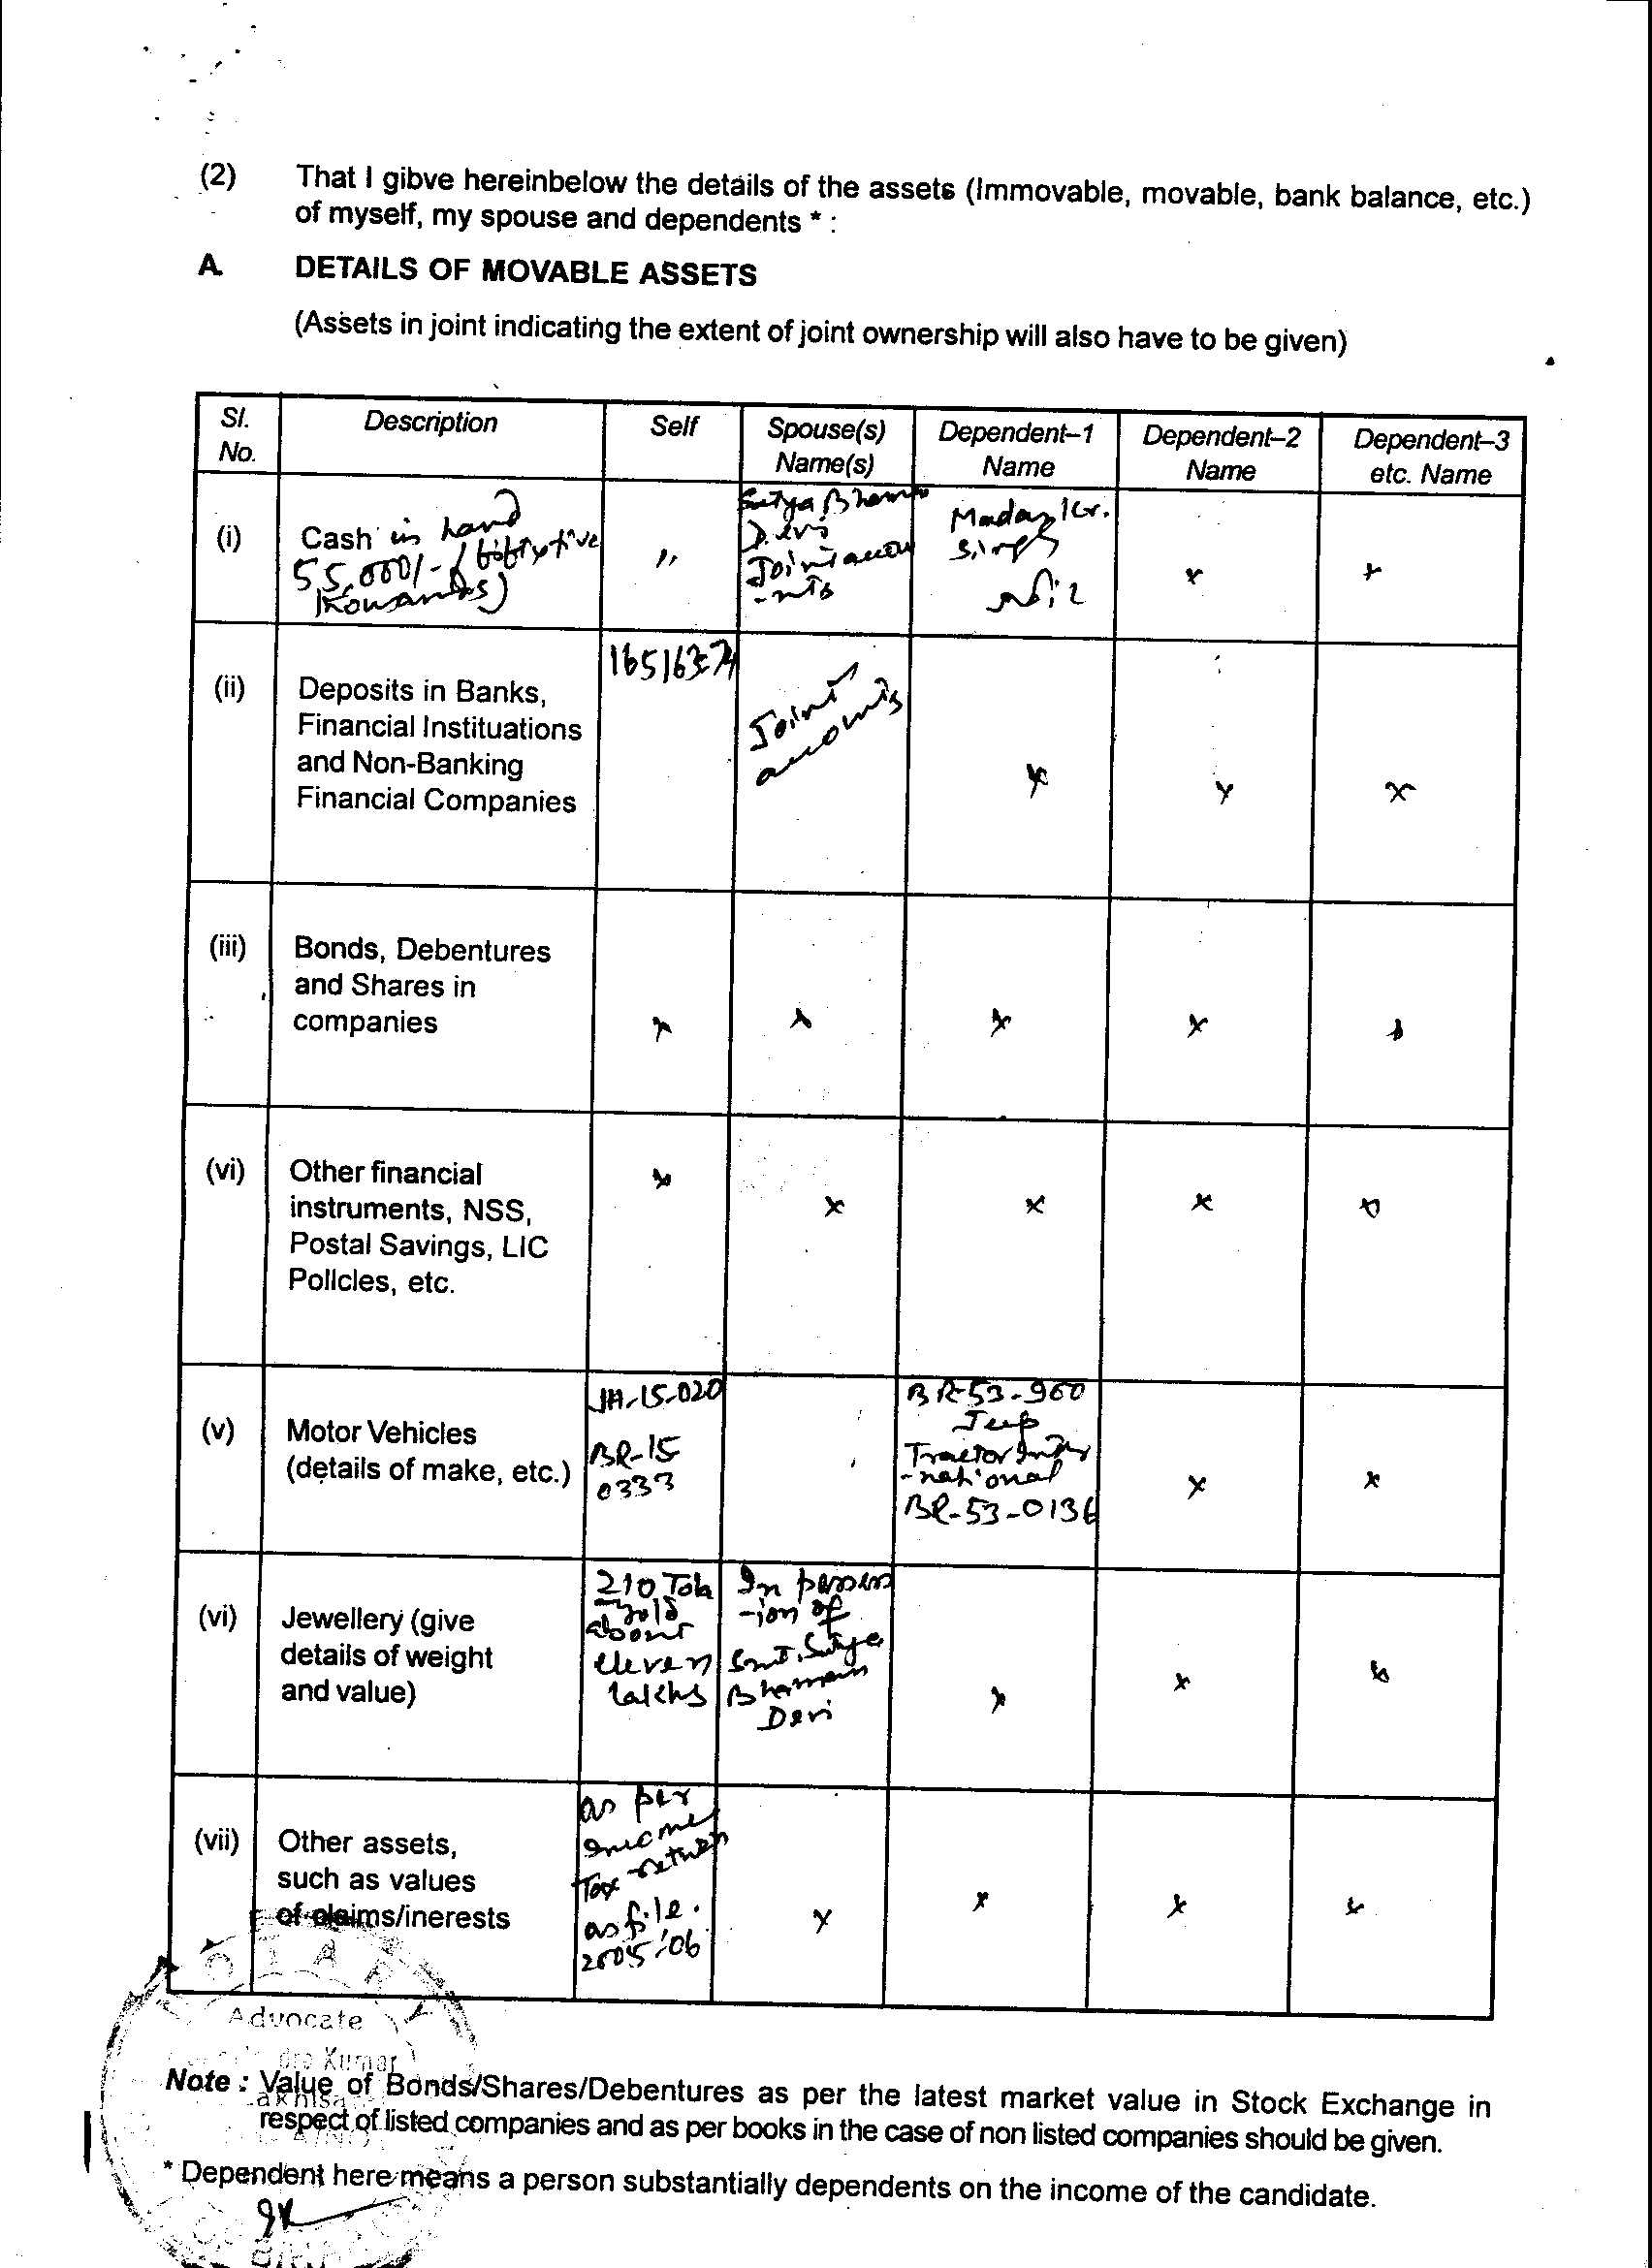 (2) That I gibve hereinbelow the details of the assets (Immovable, movable, bank balance, etc.)
of myself, my spouse and dependents * :
A. DETAILS OF MOVABLE ASSETS
(Assets in joint indicating the extent of joint ownership will also have to be given)
Sl. No. Description Self Spouse(s) Name(s) Dependent–1 Name Dependent–2 Name Dependent–3 etc. Name
(i) Cash in hand
55,000/-
"
Satya Bhama
Devi
Joint accou
-nts
Madan Kr.
Singh
Nil
x
x
(ii) Deposits in Banks,
Financial Instituations
and Non-Banking
Financial Companies
Joint
accounts
x
x
x
(iii) Bonds, Debentures
and Shares in
companies
x
x
x
x
x
(vi) Other financial
instruments, NSS,
Postal Savings, LIC
Policies, etc.
x
x
x
x
x
(v) Motor Vehicles
(details of make, etc.)
JH-15-020
BR-15
0333
BR-53-960
Jeep
Tractor Inter
-national
BR-53-0136
x
x
(vi) Jewellery (give
details of weight
and value)
210 Tola
gold
about
eleven
lakhs
In possess
-ion of
Smt. Satya
Bhama
Devi
x
x
x
(vii) Other assets,
such as values
of claims/inerests
as per
Income
Tax return
as file.
2005-'06
x
x
x
x
Advocate
Kumar
Note : Value of Bonds/Shares/Debentures as per the latest market value in Stock Exchange in
respect of listed companies and as per books in the case of non listed companies should be given.
* Dependent here means a person substantially dependents on the income of the candidate.